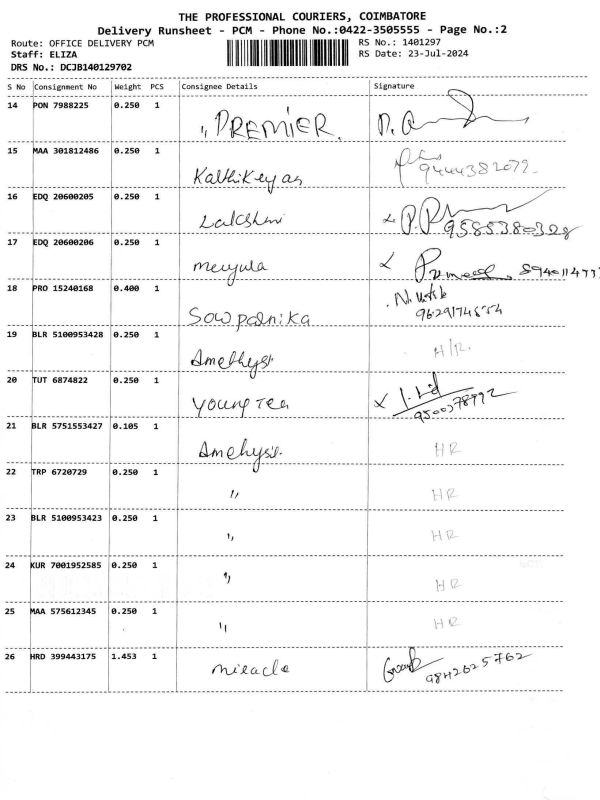 THE PROFESSIONAL COURIERS, COIMBATORE
Delivery Runsheet - PCM - Phone No.:0422-3505555 - Page No.:2
Route: OFFICE DELIVERY PCM RS No.: 1401297
Staff: ELIZA RS Date: 23-Jul-2024
DRS No.: DCJB140129702
S No Consignment No Weight PCS Consignee Details Signature
14 PON 7988225 0.250 1 " PREMIER.
15 MAA 301812486 0.250 1 Kathikeyan 9444382079
16 EDQ 20600205 0.250 1 Lakshmi 9585380328
17 EDQ 20600206 0.250 1 menjula
18 PRO 15240168 0.400 1 Sowparnika
19 BLR 5100953428 0.250 1 Amethyst H/R.
20 TUT 6874822 0.250 1 Young Tea
21 BLR 5751553427 0.105 1 Amehyst. HR
22 TRP 6720729 0.250 1 " HR
23 BLR 5100953423 0.250 1 " HR
24 KUR 7001952585 0.250 1 " HR
25 MAA 575612345 0.250 1 " HR
26 HRD 399443175 1.453 1 miracle 9842625762